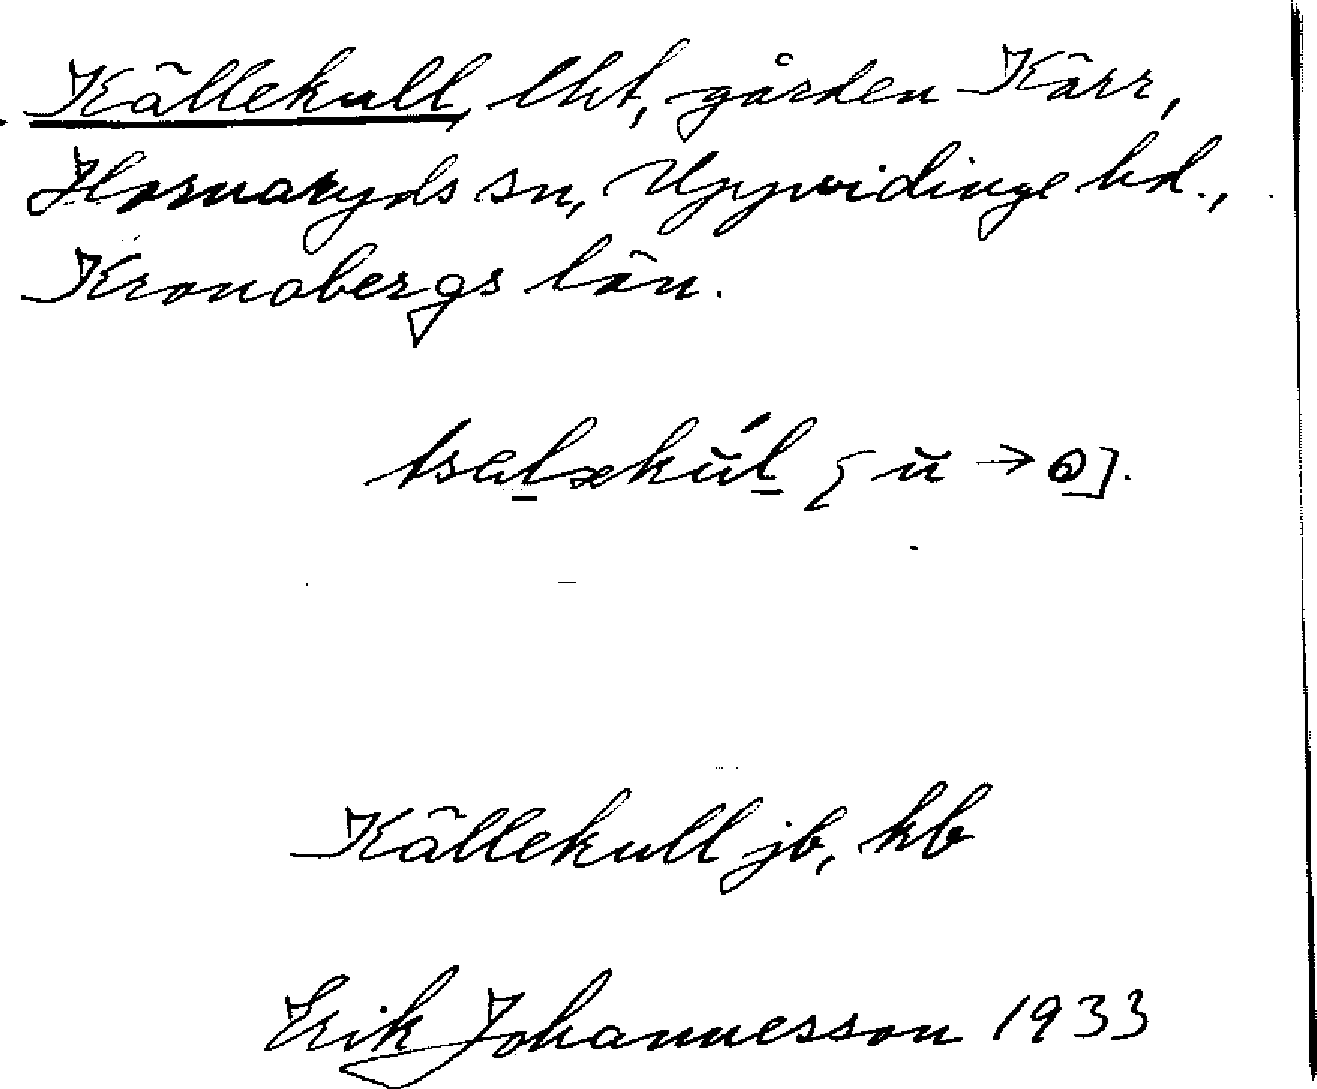 Källekull, lht, gården Kärr,
Hornaryds sn, Uppvidinge hd.,
Kronobergs län.
Källekull jb, kb
Erik Johannesson 1933